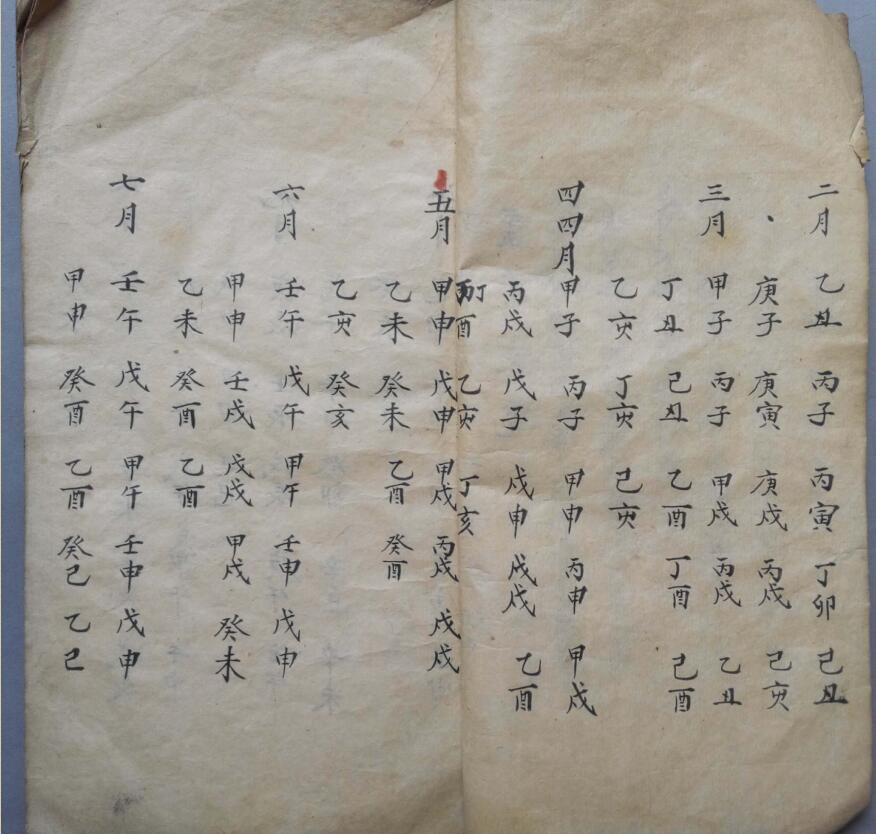 二月 乙丑 丙子 丙寅 丁卯 己丑
、 庚子 庚寅 庚戍 丙戍 己亥
三月 甲子 丙子 甲戍 丙戍 乙丑
丁丑 己丑 乙酉 丁酉 己酉
乙亥 丁亥 己亥
四四月 甲子 丙子 甲申 丙申 甲戍
丙戍 戊子 戊申 戊戍 乙酉
丁酉 乙亥 丁亥
五月 甲申 戊申 甲戍 丙戍 戊戍
乙未 癸未 乙酉 癸酉
乙亥 癸亥
六月 壬午 戊午 甲午 壬申 戊申
甲申 壬戍 戊戍 甲戍 癸未
乙未 癸酉 乙酉
七月 壬午 戊午 甲午 壬申 戊申
甲申 癸酉 乙酉 癸己 乙己